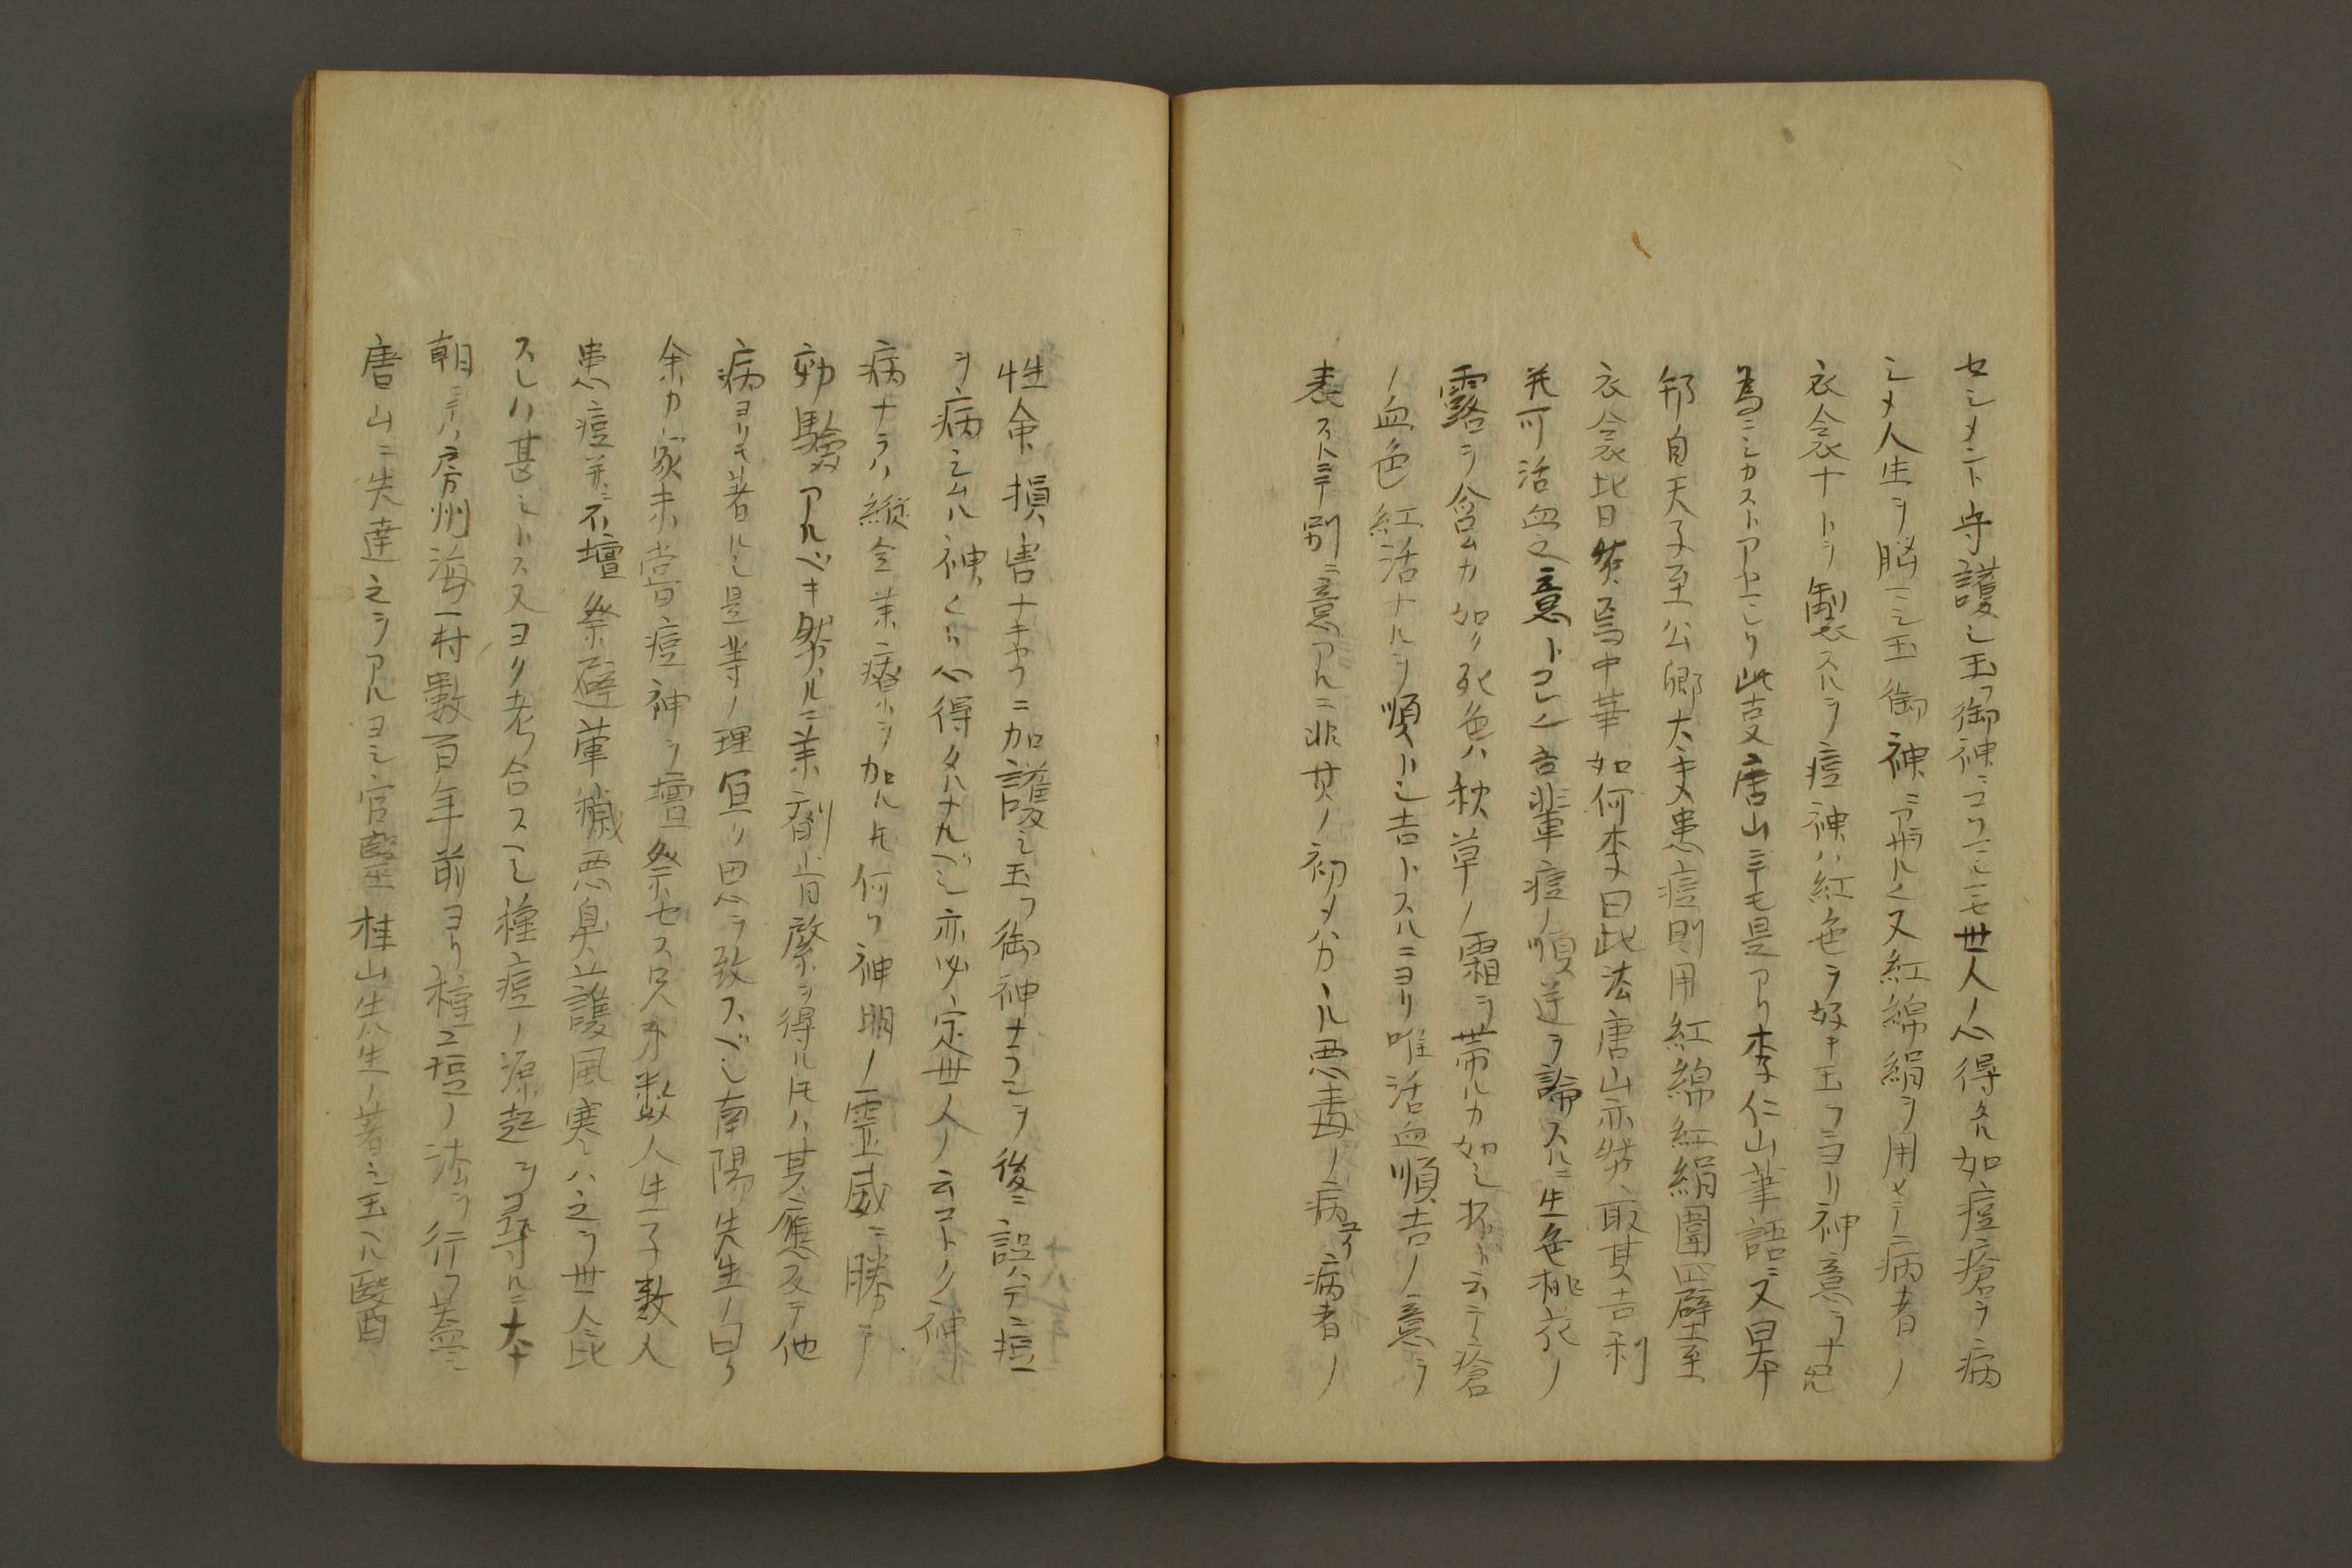 セシメント守護シ玉フ御神ニコソマシマセ世人ノ心得タル如痘瘡ヲ病
シメ人生ヲ脳マシ玉御神ニアラサルヘク又紅綿絹ヲ用ヒテ病者ノ
衣衾ナトヲ製スルヲ痘神ハ紅色ヲ好キ玉フニヨリ神意ヲナクサル
為ニシカストアヤマレリ此支唐山ニテモ是アリ李仁山筆語ニ又曰本
邦自天子至公卿大夫患痘則用紅綿紅絹圍四壁至
衣衾比日然焉中華如何李曰此法唐山亦然取其吉利
并可活血之意トコレハ吾輩痘ノ順逆ヲ論スルニ生色桃花ノ
露ヲ含ムカ如ク死色ハ秋草ノ霜ヲ帯ルカ如シ抔ト云テ瘡
ノ血色紅活ナルヲ順トシ吉トスルニヨリ唯活血順吉ノ意ヲ
表ストニテ別ニ意アルニ非其ノ初メハカヽル悪毒ノ病ユヘ病者ノ
性命損害ナキヤフニ加護シ玉フ御神ナランヲ後ニ誤ハテ痘
ヲ病シムル神トハ心得タルナルベシ亦必定世ノ人ノ云コトク神ノ
病ナラハ縦令薬療ヲ加ルトモ何ソ神明ノ霊威ニ勝テ
効驗アルベキ然ルニ薬劑肯綮ヲ得ルトキハ其應又テ他
病ヨリモ著ルシ是等ノ理宜ク思ヲ致スベシ南陽先生ノ曰ク
余カ家未嘗痘神ヲ壇祭セス兄弟数人生子数人
患痘并ニ不壇祭辟葷穢悪臭護風寒ハ之ヲ世人ニ比
スレハ甚シトス又ヨク考合スヘシ種痘ノ源起ヲ尋ルニ本
朝ニテハ房州海一村數百年前ヨリ種痘ノ法ヲ行フ蓋シ
唐山ニ先達之ヲアルヨシ官醫桂山先生ノ著シ玉ヘル醫